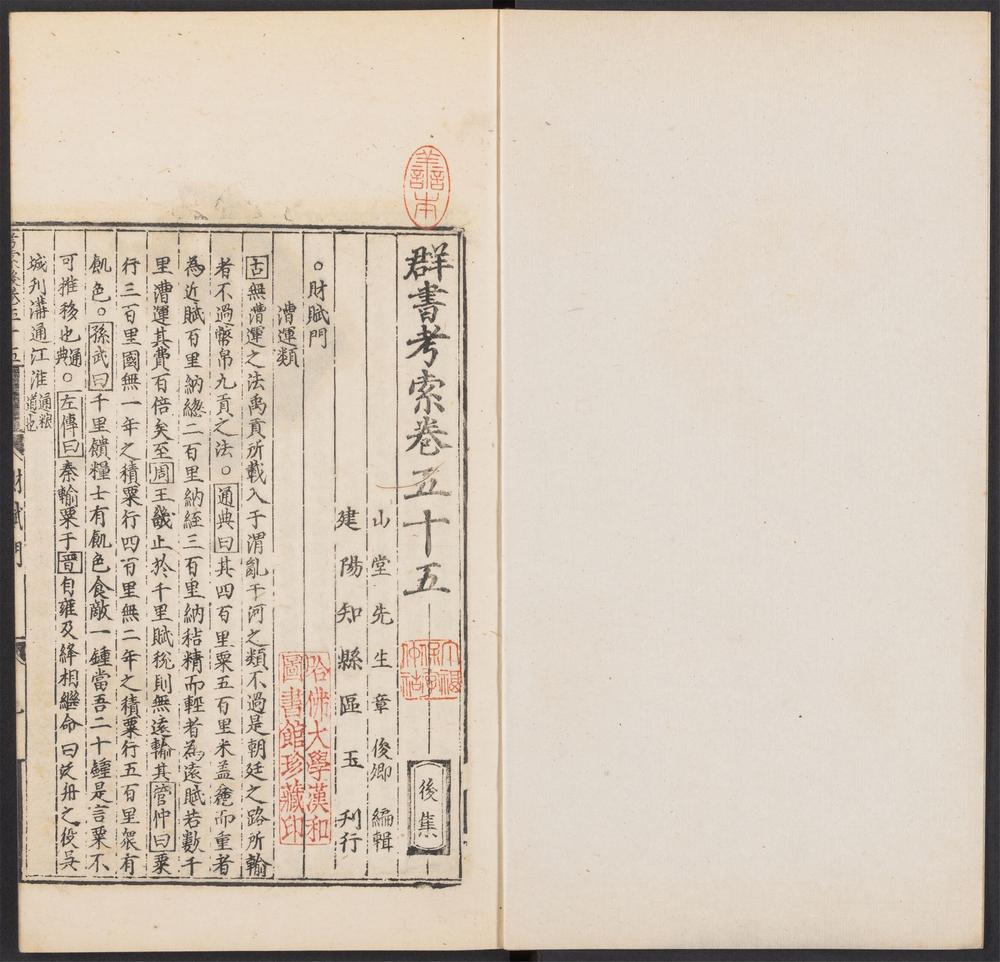 善本
群書考索卷五十五
後集
山堂先生章俊卿編輯
建陽知縣區玉刊行
哈佛大學漢和
圖書館珍藏印
○財賦門
漕運類
古無漕運之法禹貢所載入于渭亂于河之類不過是朝廷之路所輸
者不過幣帛九貢之法○通典曰其四百里粟五百里米盖麄而重者
為近賦百里納緫二百里納銍三百里納秸精而輕者為遠賦若數千
里漕運其費百倍矣至周王畿止於千里賦稅則無遠輸其管仲曰粟
行三百里國無一年之積粟行四百里無二年之積粟行五百里衆有
飢色○孫武曰千里饋糧士有飢色食敵一鍾當吾二十鍾是言粟不
可推移也通典○左傳曰秦輸粟于晉自雍及絳相繼命曰泛舟之役吳
城刋溝通江淮通粮道也
財賦門